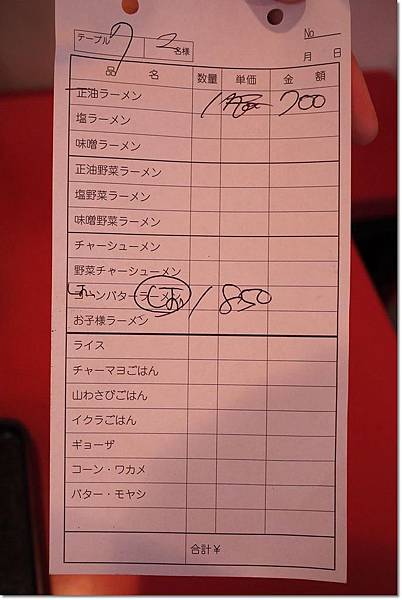 No
テーブル 7 2名様
月 日
品 名 数量 単価 金 額
正油ラーメン 1 700
塩ラーメン
味噌ラーメン
正油野菜ラーメン
塩野菜ラーメン
味噌野菜ラーメン
チャーシューメン
野菜チャーシューメン
コーンバターラーメン 1 850
お子様ラーメン
ライス
チャーマヨごはん
山わさびごはん
イクラごはん
ギョーザ
コーン・ワカメ
バター・モヤシ
合計￥